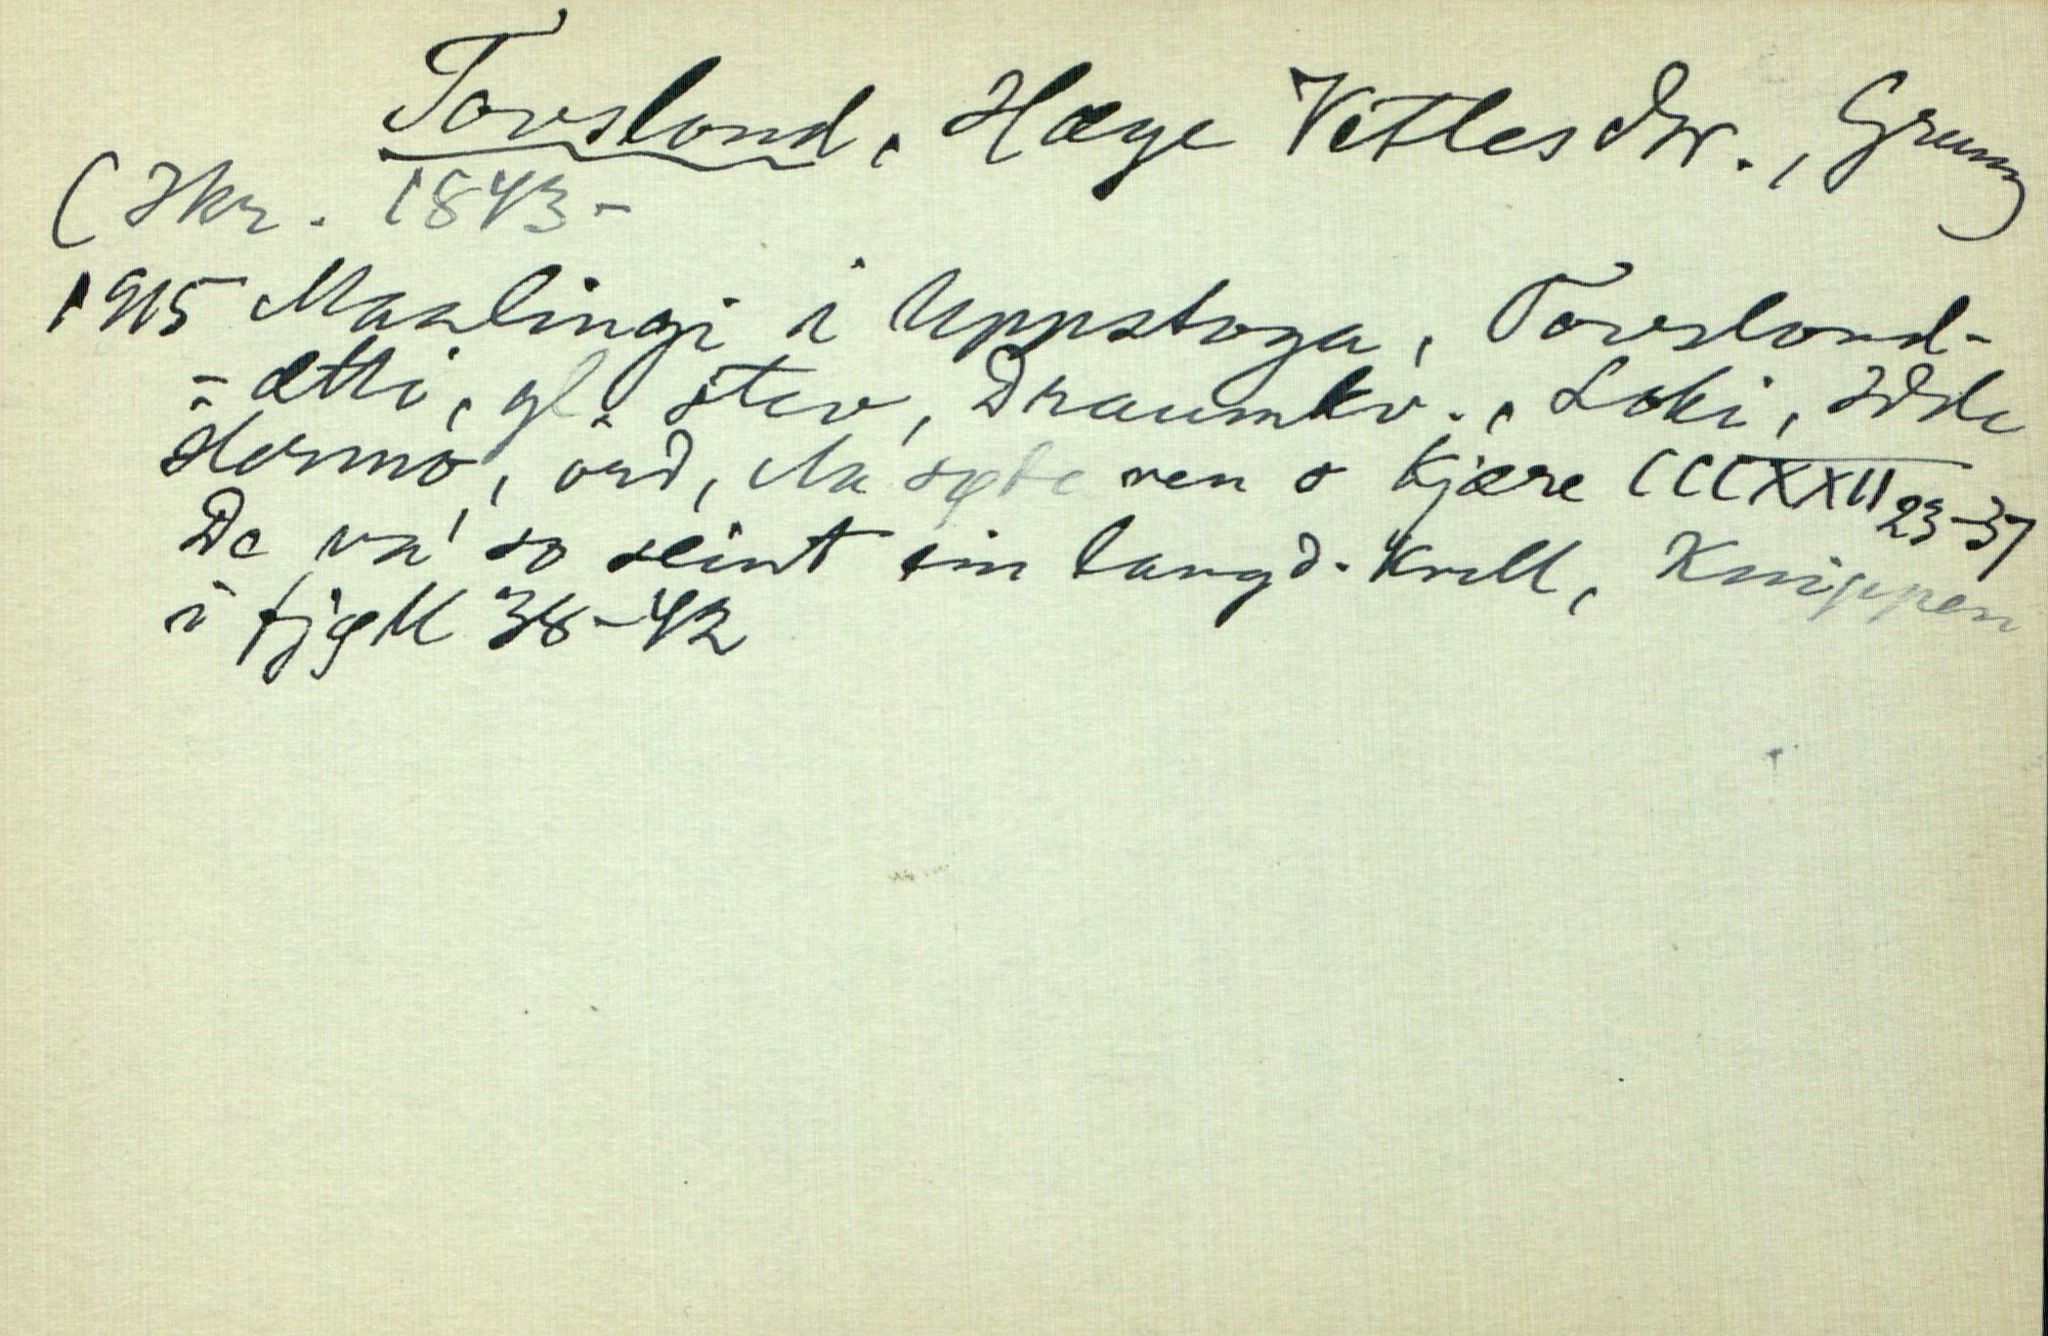 Tovslond, Hæge Vetlesdtr., Grung
( Skr. 1843-
1915 Maalingi i Uppstoga, Tovslond-
-ætti, gl. stev, Draumkv., Loki,
ord, ven o kjære CCCXXII 23-37
De va' so seint ein laugd. kvell, Knippen
i fjøll 38-42